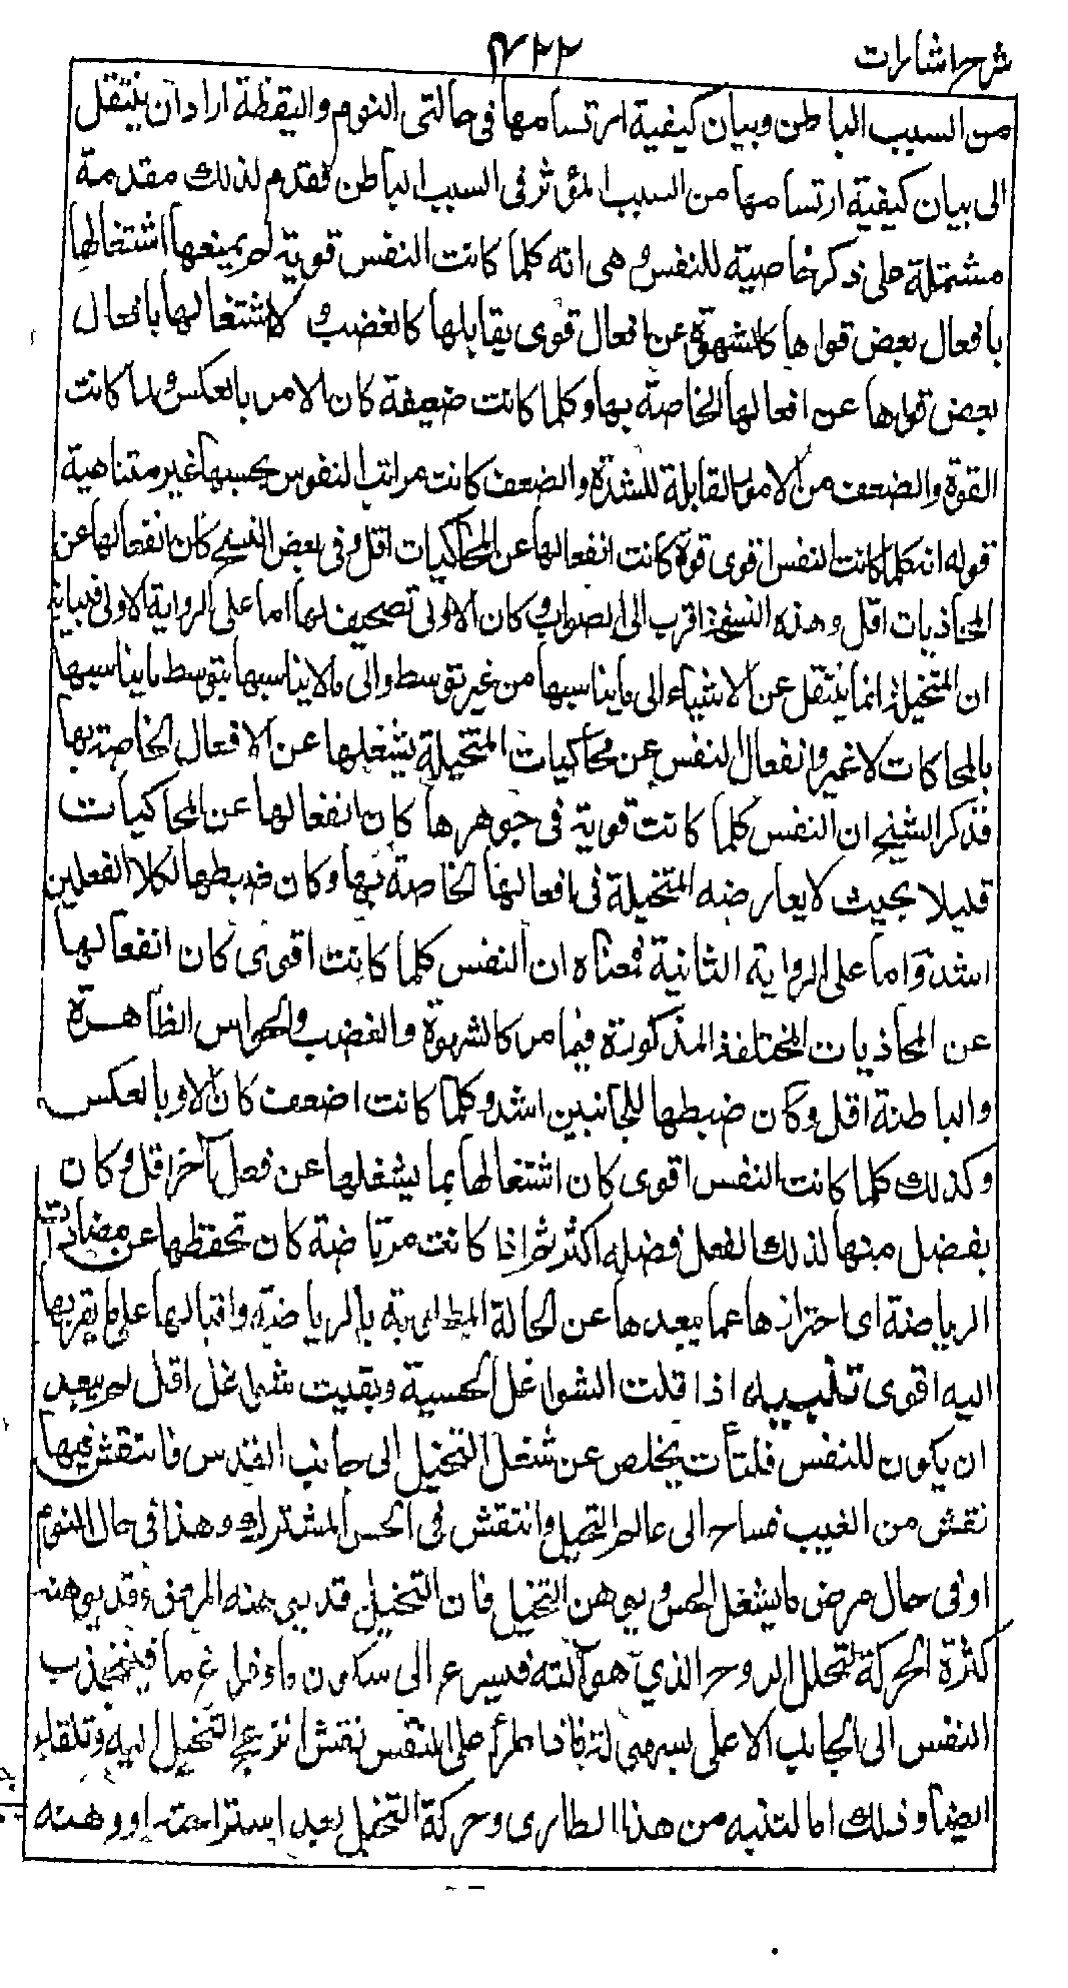 شرح اشارات
٤٢٢
من السبب الباطن وبيان كيفية ارتسامها فى حالتى النوم واليقظة اراد ان ينتقل
الى بيان كيفية ارتسامها من السبب المؤثر فى السبب الباطن فقدم لذلك مقدمة
مشتملة على ذكر خاصية للنفس وهى انه كلما كانت النفس قوية لم يمنعها اشتغالها
بافعال بعض قواها كالشهوة عن افعال قوى يقابلها كالغضب و لا اشتغالها بافعال
بعض قواها عن افعالها الخاصة بها وكلما كانت ضعيفة كان الامر بالعكس ولما كانت
القوة والضعف من الامور القابلة للشدة والضعف كانت مراتب النفوس بحسبها غير متناهية
قوله انه كلما كانت النفس اقوى قوة كانت انفعالها عن المحاكيات اقل وفى بعض النسخ كان انفعالها عن
المحاذيات اقل وهذه النسخة اقرب الى الصواب وكان الاولى تصحيف لها اما على الرواية الاولى فبيانه
ان المتخيلة انما ينتقل عن الاشياء الى ما يناسبها من غير توسط والى ما لا يناسبها بتوسط ما يناسبها
بالمحاكات لا غير وانفعال النفس عن محاكيات المتخيلة يشغلها عن الافعال الخاصة بها
فذكر الشيخ ان النفس كلما كانت قوية فى جوهرها كان انفعالها عن المحاكيات
قليلا بحيث لا يعارضه المتخيلة فى افعالها الخاصة بها وكان ضبطها لكلا الفعلين
اشد واما على الرواية الثانية فمعناه ان النفس كلما كانت اقوى كان انفعالها
عن المحاذيات المختلفة المذكورة فيما مر كالشهوة والغضب والحواس الظاهرة
والباطنة اقل وكان ضبطها للجانبين اشد وكلما كانت اضعف كان الامر بالعكس
وكذلك كلما كانت النفس اقوى كان اشتغالها بما يشغلها عن فعل آخر اقل وكان
بفضل منها لذلك الفعل فضله اكثر ثم اذا كانت مرتاضة كان تحفظها عن مضادات
الرياضة اى احترازها عما يبعدها عن الحالة المطلوبة بالرياضة واقبالها على ما يقربها
اليه اقوى تنبيه اذا قلت الشواغل الحسية وبقيت شواغل اقل لم يبعد
ان يكون للنفس فلتات يخلص عن شغل التخيل الى جانب القدس فانتقش فيها
نقش من الغيب فساح الى عالم التخيل وانتقش فى الحس المشترك وهذا فى حال النوم
او فى حال مرض ما يشغل الحس و يوهن التخيل فان التخيل قد يوهنه المرض وقد يوهنه
كثرة الحركة لتحلل الروح الذي هو آلته فيسرع الى سكون ما وفراغ ما فينجذب
النفس الى الجانب الاعلى بسهولة فاذا طرأ على النفس نقش انزعج التخيل اليه وتلقاه
ايضا وذلك اما لتنبه من هذا الطارى وحركة التخيل بعد استراحته او وهنه